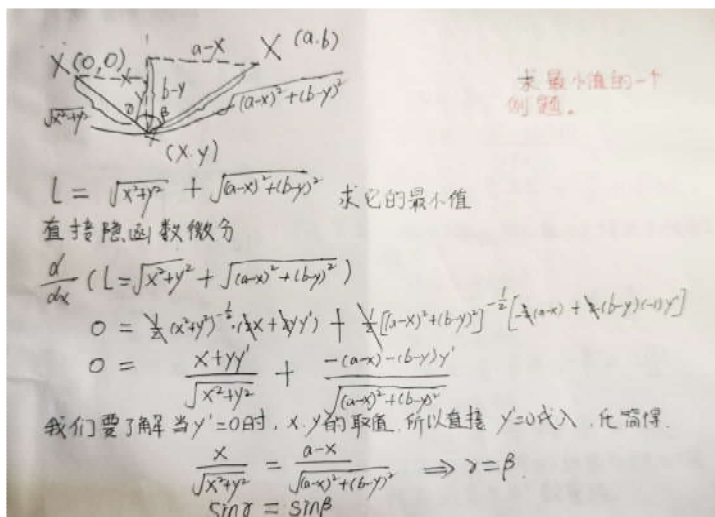 X (0,0) a-x X (a.b)
x y b-y
√x²+y² γ β √(a-x)²+(b-y)²
(x.y)
求最小值的一个
例题。
L = √x²+y² + √(a-x)²+(b-y)² 求它的最小值
直接隐函数微分
d/dx (L=√x²+y² + √(a-x)²+(b-y)²)
0 = ½(x²+y²)^-½·(2x+2yy') + ½[(a-x)²+(b-y)²]^-½[-2(a-x)+2(b-y)(-1)y']
0 = x+yy'/√x²+y² + -(a-x)-(b-y)y'/√(a-x)²+(b-y)²
我们要了解当y'=0时，x.y的取值，所以直接 y'=0代入，化简得.
x/√x²+y² = a-x/√(a-x)²+(b-y)² ⟹ γ=β.
sinγ = sinβ